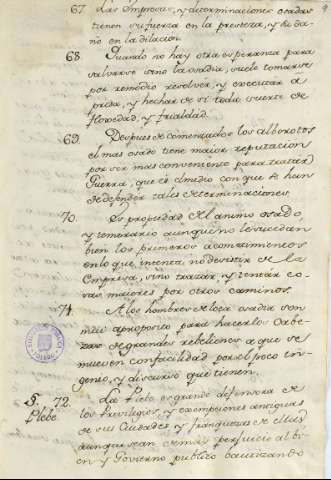 67. Las Empresas, y determinaciones osadas
tienen su fuerza en la presteza, y su da-
ño en la dilacion.
68. Quando no hay otra esperanza para
salvarse sino la osadia, suele tomarse
por remedio resolver, y executar a
prisa, y hechar de sí toda suerte de
floxedad, y frialdad.
69. Despues de comenzados los alborotos
el mas osado tiene maior reputacion
por ser mas conveniente para tratar
Guerra, que es el medio con que se han
de defender tales determinaciones.
70. Es propiedad del animo osado,
y temerario aunque no le sucedan
bien los primeros acometimientos
en lo que intenta, no desistir de la
Empresa, sino trazar, y tentar co-
sas maiores por otros caminos.
71. A los hombres de loca osadia son
mui aproposito para hacerlos cabe-
zas de grandes rebeliones a que se
mueven con facilidad por el poco in-
genio, y discurso que tienen.
§. 72. La Plebe es grande defensora de
Plebe los Privilegios, y excempciones antiguas
de sus Ciudades, y franquezas de ellas,
aunque sean de mas perjuicio al bi-
en y Govierno publico bautizando